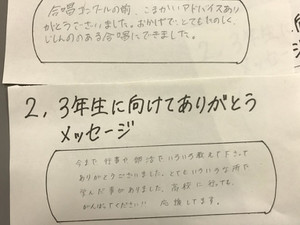 合唱コンクールの前、こまかいアドバイスあり
がとうございました。おかげで、とてもたのしく、
じしんのある合唱にできました。
2, 3年生に向けてありがとう
メッセージ
今まで行事や部活でいろいろ教えて下さって
ありがとうございました。とてもいろいろな所で
学んだ事がありました。高校に行っても、
がんばってください!! 応援してます。